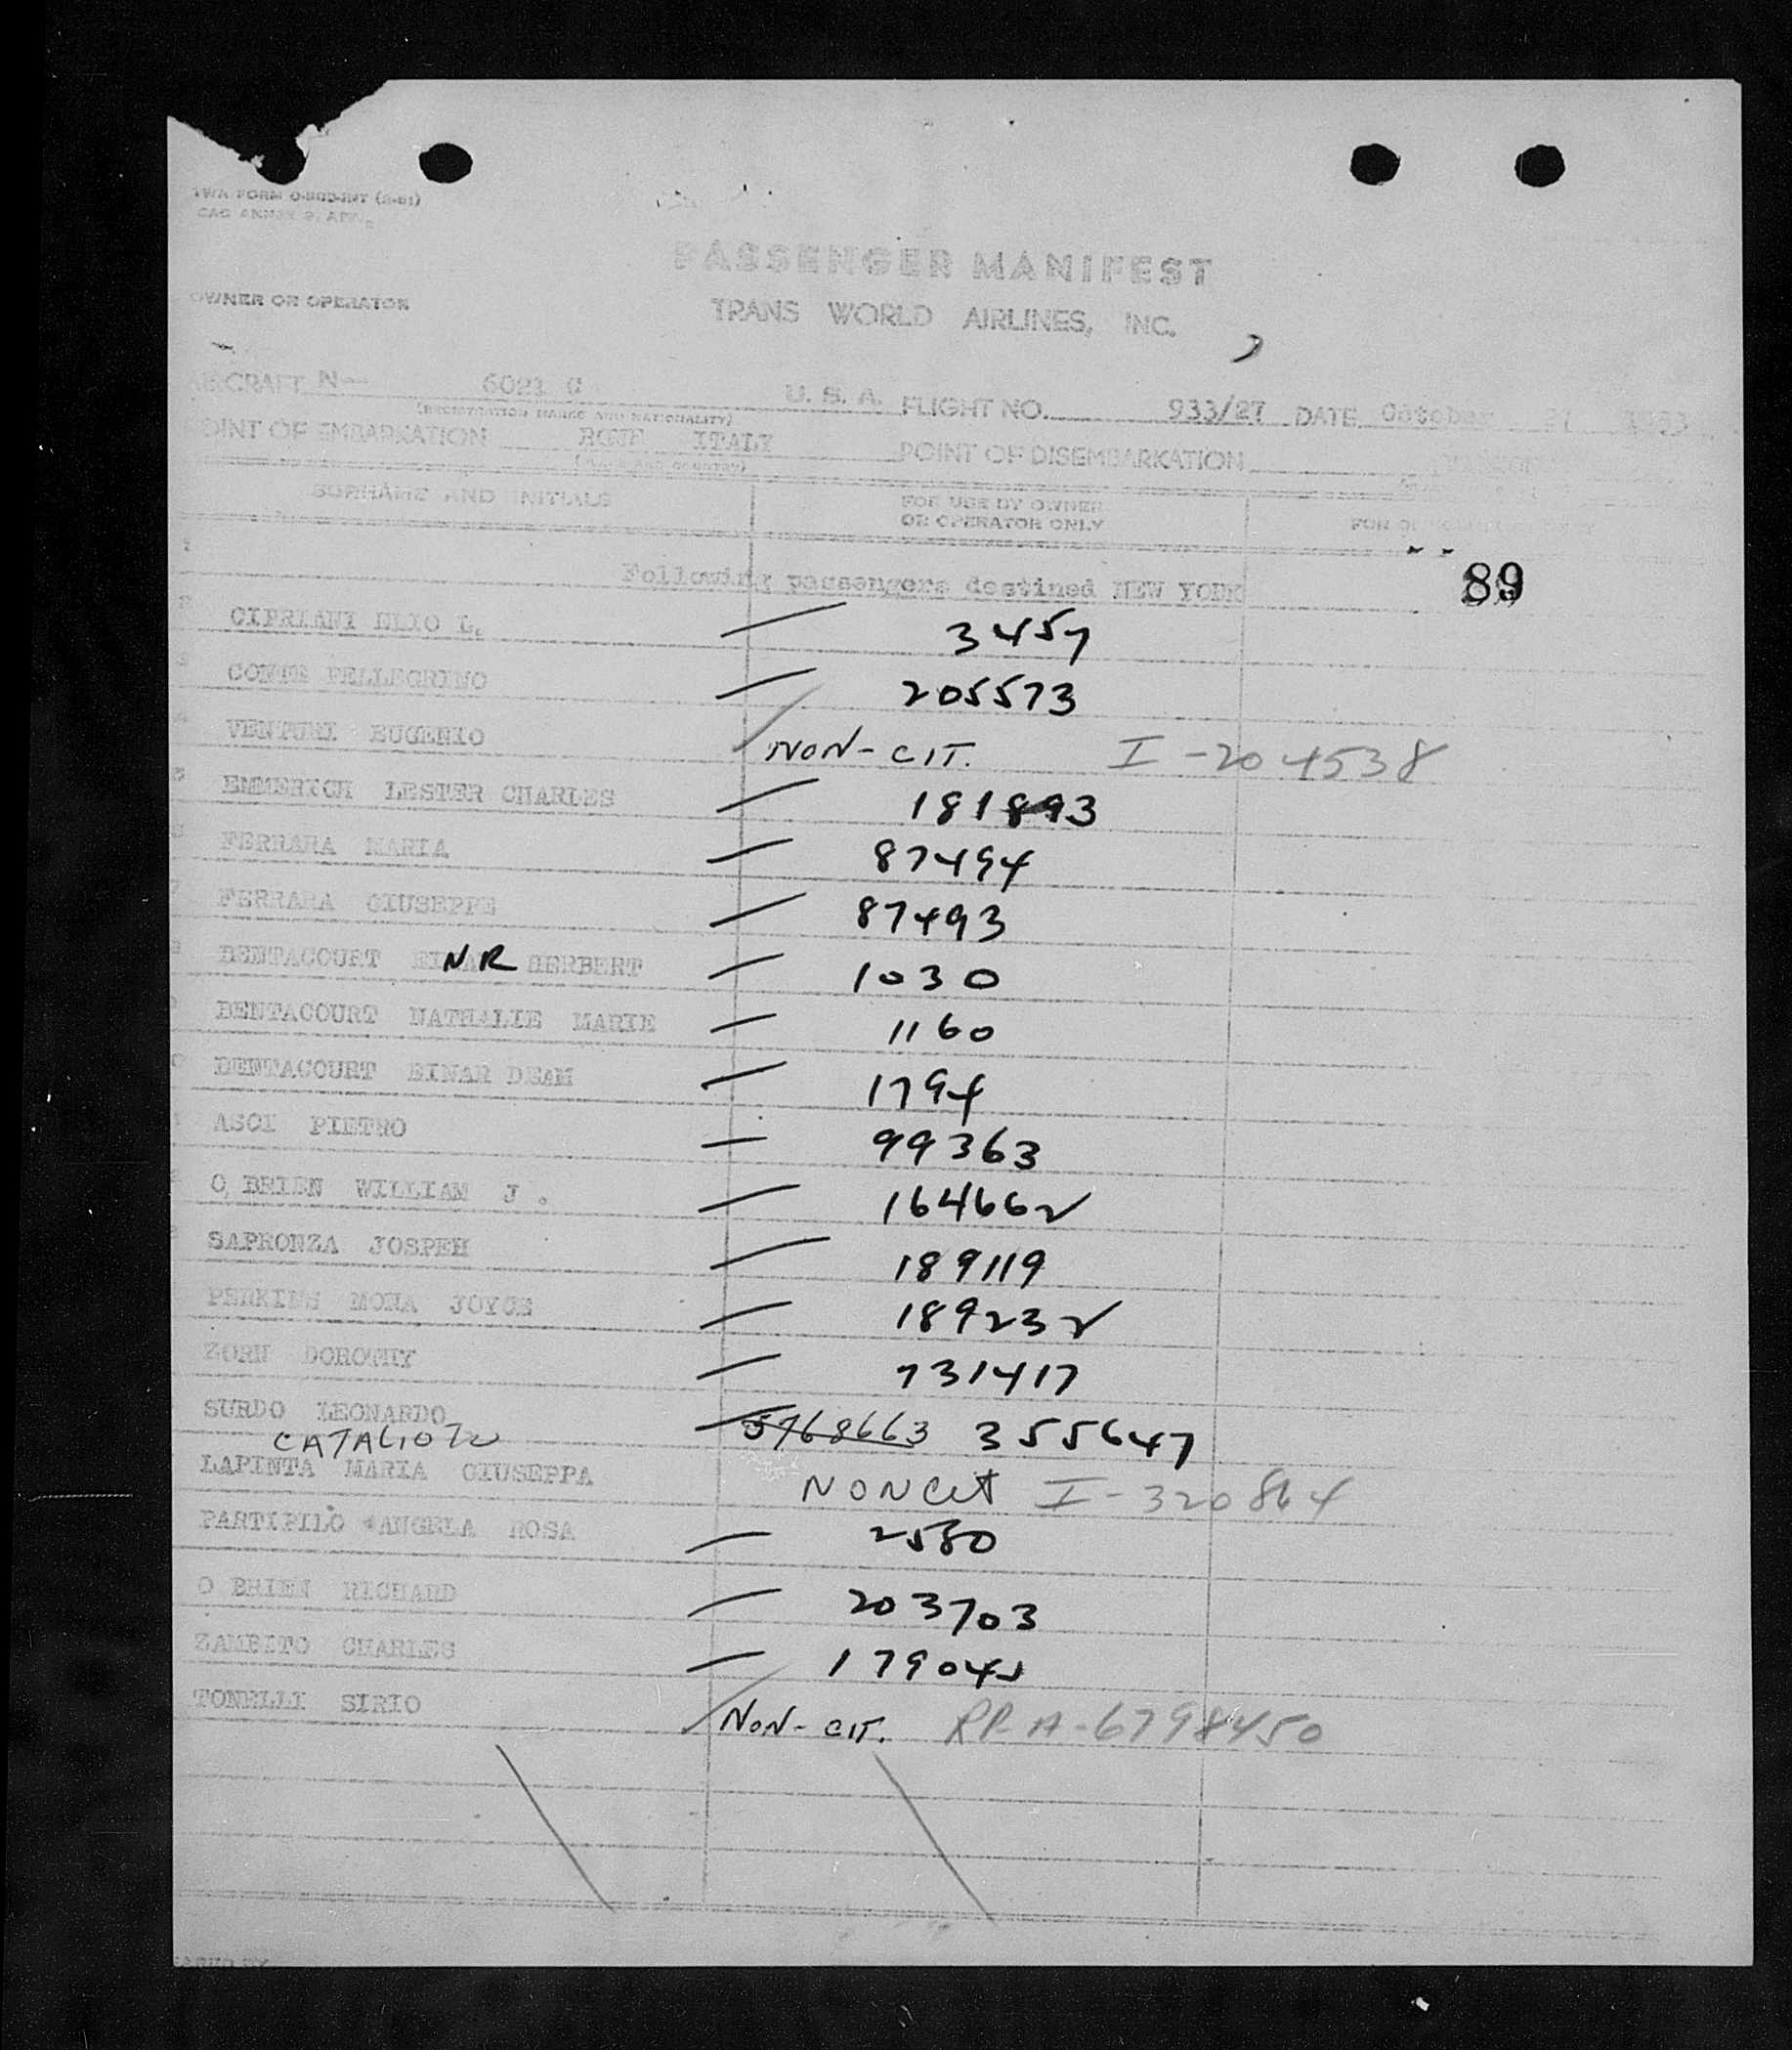 TWA FORM
OWNER OR OPERATOR
PASSENGER MANIFEST
TRANS WORLD AIRLINES, INC.
AIRCRAFT N— 6021 C U. S. A. FLIGHT NO. 933/27 DATE October
(REGISTRATION MARKS AND NATIONALITY)
POINT OF EMBARKATION ROME ITALY POINT OF DISEMBARKATION
(PLACE AND COUNTRY)
SURNAME AND INITIALS FOR USE BY OWNER OR OPERATOR ONLY
89
Following passengers destined NEW YORK
CIPRIANI ELIO L. 3457
CONTE PELLEGRINO 205573
VENTURI EUGENIO NON-CIT. I-204538
EMMERICH LESTER CHARLES 181893
FERRARA MARIA 87494
FERRARA GIUSEPPE 87493
BENTACOURT NR HERBERT 1030
BENTACOURT NATHALIE MARIE 1160
BENTACOURT EINAR DEAM 1794
ASCI PIETRO 99363
O, BRIEN WILLIAM J . 164662
SAPRONZA JOSPEH 189119
PERKINS MONA JOYCE 189232
ZORN DOROTHY 731417
SURDO LEONARDO 5768663 355647
LAPINTA MARIA GIUSEPPA NONCIT I-320864
PARTIPILO ANGELA ROSA 2580
O BRIEN RICHARD 203703
ZAMBITO CHARLES
TONELLI SIRIO NON-CIT. RP-A-6798450